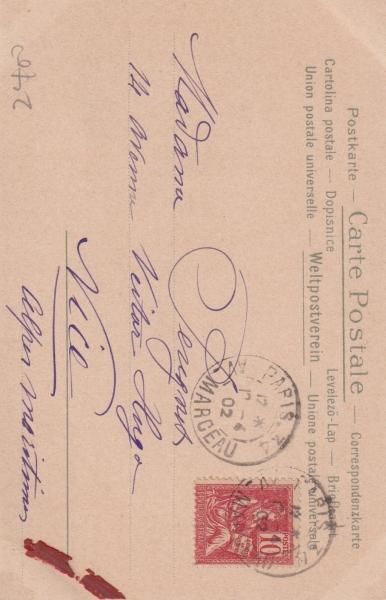 Postkarte — Carte Postale — Correspondenzkarte
Cartolina postale — Dopisnice Levelező-Lap —
Union postale universelle — Weltpostverein — Unione postale universale
Madame
14 Avenue Victor Hugo
Nice
Alpes Maritimes
PARIS
02
MARCEAU
POSTES
10
2470